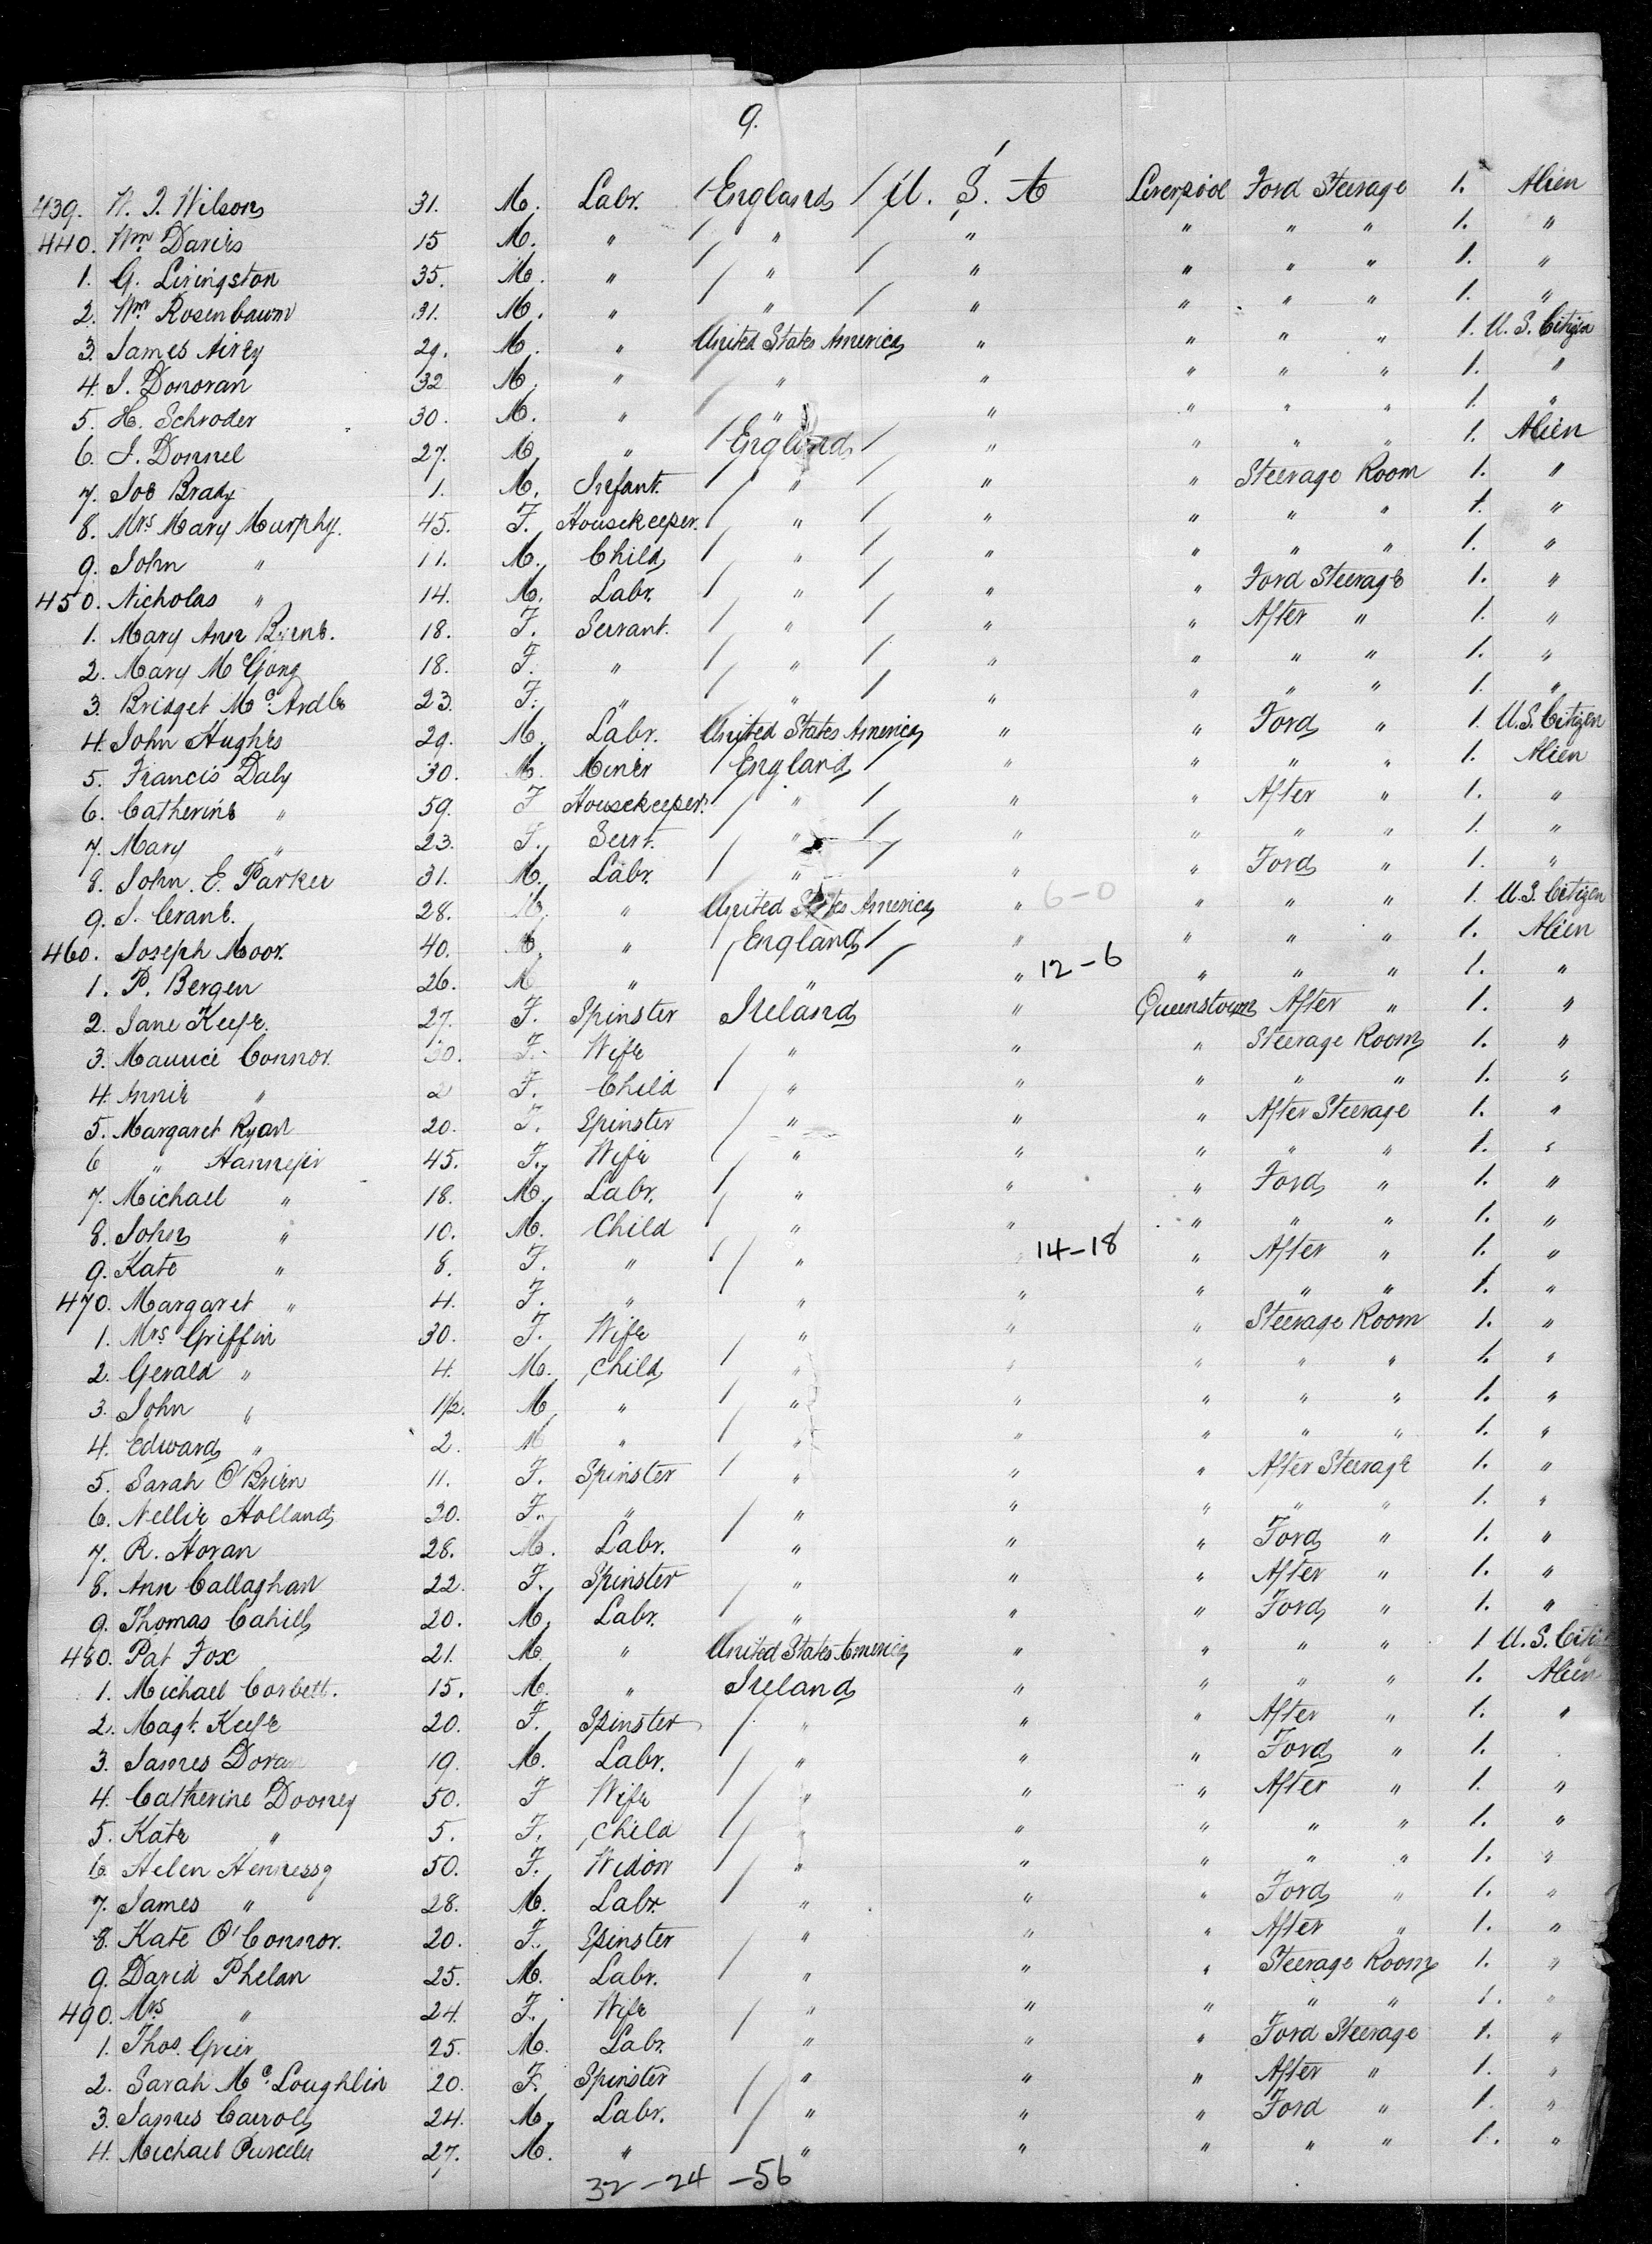 9.
439. W. J. Wilson 31. M. Labr. England U. S. A Liverpool Ford Steerage 1. Alien
440. Wm Davies 15 M. " " " " " " 1. "
1. G. Livingston 35. M. " " " " " " 1. "
2. Wm Rosenbaum 31. M. " " " " " " 1. "
3. James Airey 29. M. " United States America " " " " 1. U. S. Citizen
4. J. Donovan 32 M. " " " " " " 1. "
5. H. Schroder 30. M. " " " " " " 1. "
6. J. Donnel 27. M. " England " " " " 1. Alien
7. Joe Brady 1. M. Infant. " " " Steerage Room 1. "
8. Mrs Mary Murphy. 45. F. Housekeeper. " " " " " 1. "
9. John " 11. M. Child " " " " " 1. "
450. Nicholas " 14. M. Labr. " " " Ford Steerage 1. "
1. Mary Ann 18. F. Servant. " " " After " 1. "
2. Mary 18. F. " " " " " " 1. "
3. Bridget Mc Ardle 23. F. " " " " " " 1. "
4. John Hughes 29. M. Labr. United States America " " Ford " 1. U.S. Citizen
5. Francis Daly 30. M. Miner England " " " " 1. Alien
6. Catherine " 59. F Housekeeper. " " " After " 1. "
7. Mary " 23. F. Servt. " " " " " 1. "
8. John. E. Parker 31. M. Labr. " " " Ford " 1. "
9. J. Crane. 28. M. " United States America " 6-0 " " " 1. U.S. Citizen
460. Joseph Moor. 40. M. " England " " " " 1. Alien
1. P. Bergen 26. M " " " 12-6 " " " 1. "
2. Jane Keefe. 27. F. Spinster Ireland " Queenstown After " 1. "
3. Maurice Connor. F. Wife " " " Steerage Room 1. "
4. Annie " 2 F. Child " " " " " 1. "
5. Margaret Ryan 20. F. Spinster " " " After Steerage 1. "
6 " 45. F. Wife " " " " " 1. "
7. Michael " 18. M. Labr. " " " Ford " 1. "
8. John " 10. M. Child " " " " " 1. "
9. Kate " 8. F. " " " 14-18 " After " 1. "
470. Margaret " 4. F. " " " " " " 1. "
1. Mrs Griffin 30. F. Wife " " " Steerage Room 1. "
2. Gerald " 4. M. Child " " " " " 1. "
3. John " 1/2. M " " " " " " 1. "
4. Edward " 2. M " " " " " " 1. "
5. Sarah O'Brien 11. F. Spinster " " " After Steerage 1. "
6. Nellie Holland 20. F. " " " " " " 1. "
7. R. Horan 28. M. Labr. " " " Ford " 1. "
8. Ann Callaghan 22. F. Spinster " " " After " 1. "
9. Thomas Cahill 20. M. Labr. " " " Ford " 1. "
480. Pat Fox 21. M. " United States America " " " " 1 U. S. Citi
1. Michael Corbett. 15. M. " Ireland " " " " 1. Alien
2. Magt. Keefe 20. F. Spinster " " " After " 1. "
3. James Doran 19. M. Labr. " " " Ford " 1.
4. Catherine Dooney 50. F Wife " " " After " 1. "
5. Kate " 5. F. Child " " " " " 1. "
6. Helen Hennessy 50. F. Widow " " " " " 1. "
7. James " 28. M. Labr. " " " Ford " 1. "
8. Kate O'Connor. 20. F. Spinster " " " After " 1. "
9. David Phelan 25. M. Labr. " " " Steerage Room 1. "
490. Mrs " 24. F. Wife " " " " " 1. "
1. Thos. Grier 25. M. Labr. " " " Ford Steerage 1. "
2. Sarah Mc Loughlin 20. F. Spinster " " " After " 1. "
3. James Carroll 24. M. Labr. " " " Ford " 1. "
4. Michael Purcell 27. M. " " " " " " 1. "
32-24-56